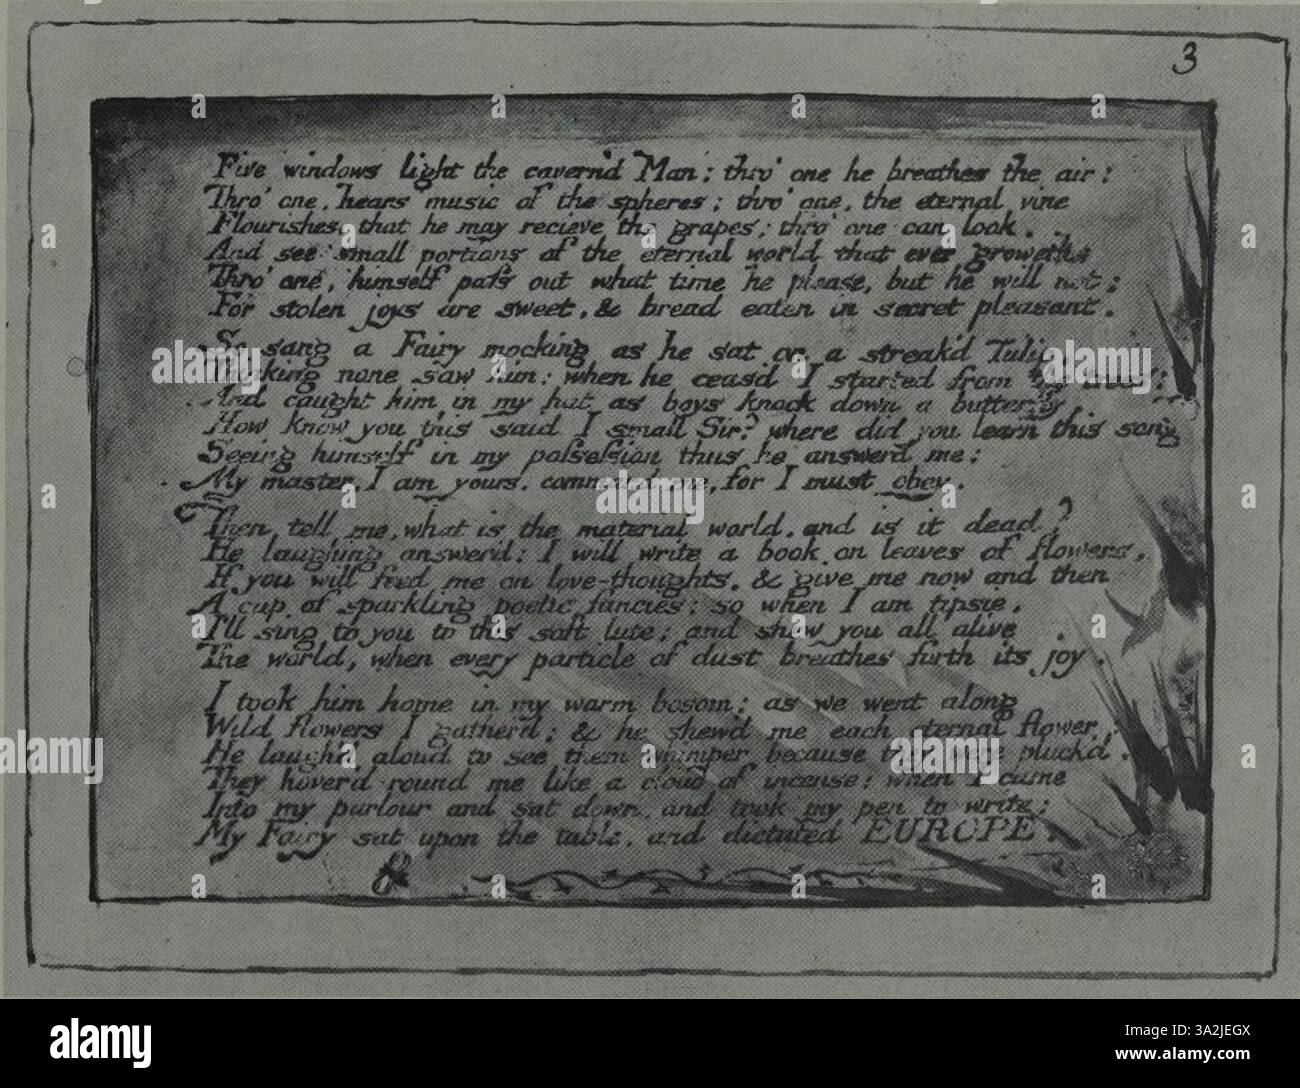 3
Five windows light the cavern'd Man: thro' one he breathes the air:
Thro' one, hears music of the spheres; thro' one, the eternal vine
Flourishes, that he may recieve the grapes; thro' one can look.
And see small portions of the eternal world that ever groweth;
Thro' one, himself pass out what time he please, but he will not;
For stolen joys are sweet, & bread eaten in secret pleasant.
So sang a Fairy mocking as he sat on a streak'd Tulip,
Thinking none saw him: when he ceas'd I started from
And caught him in my hat as boys knock down a butterfly
How know you this said I small Sir? where did you learn this song
Seeing himself in my possession thus he answerd me:
My master, I am yours. command me, for I must obey.
Then tell me, what is the material world, and is it dead?
He laughing answer'd: I will write a book on leaves of flowers,
If you will feed me on love-thoughts, & give me now and then
A cup of sparkling poetic fancies; so when I am tipsie,
I'll sing to you to this soft lute; and shew you all alive
The world, when every particle of dust breathes forth its joy.
I took him home in my warm bosom: as we went along
Wild flowers I gatherd; & he shew'd me each eternal flower:
He laugh'd aloud to see them whimper because they were pluck'd.
They hover'd round me like a cloud of incense: when I came
Into my parlour and sat down, and took my pen to write:
My Fairy sat upon the table, and dictated EUROPE.
alamy
alamy
alamy
Image ID: 3A2JEGX
www.alamy.com